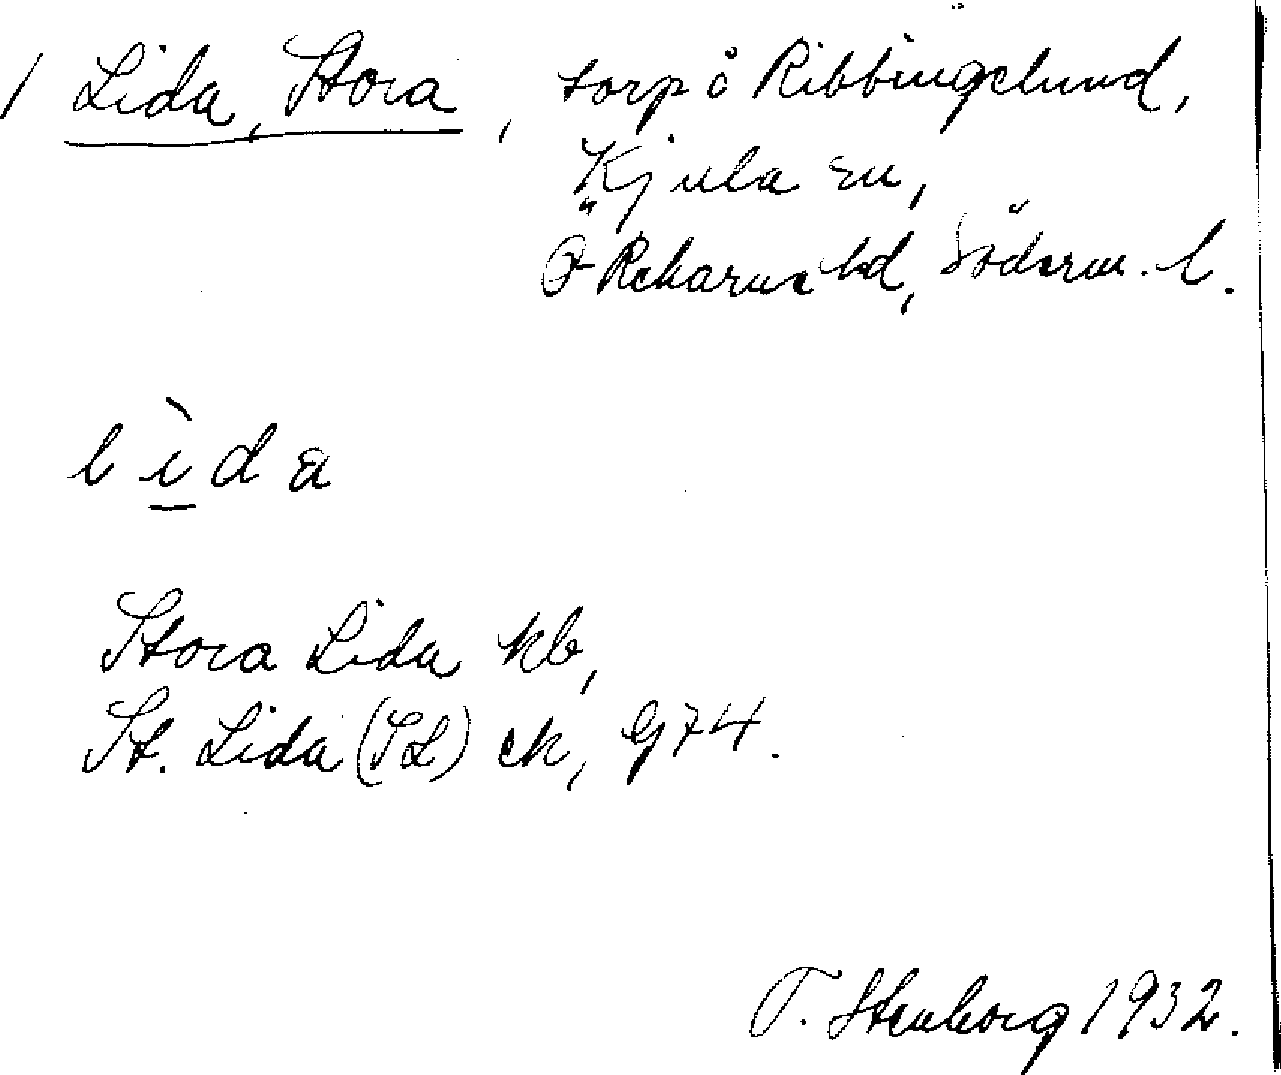 / Lida, Stora, torp å Ribbingelund,
Kjula sn,
Ö Rekarne hd, Söderm. l.
l ì d a
Stora Lida kb,
St. Lida (SL) ek, G74.
T. Stenborg 1932.